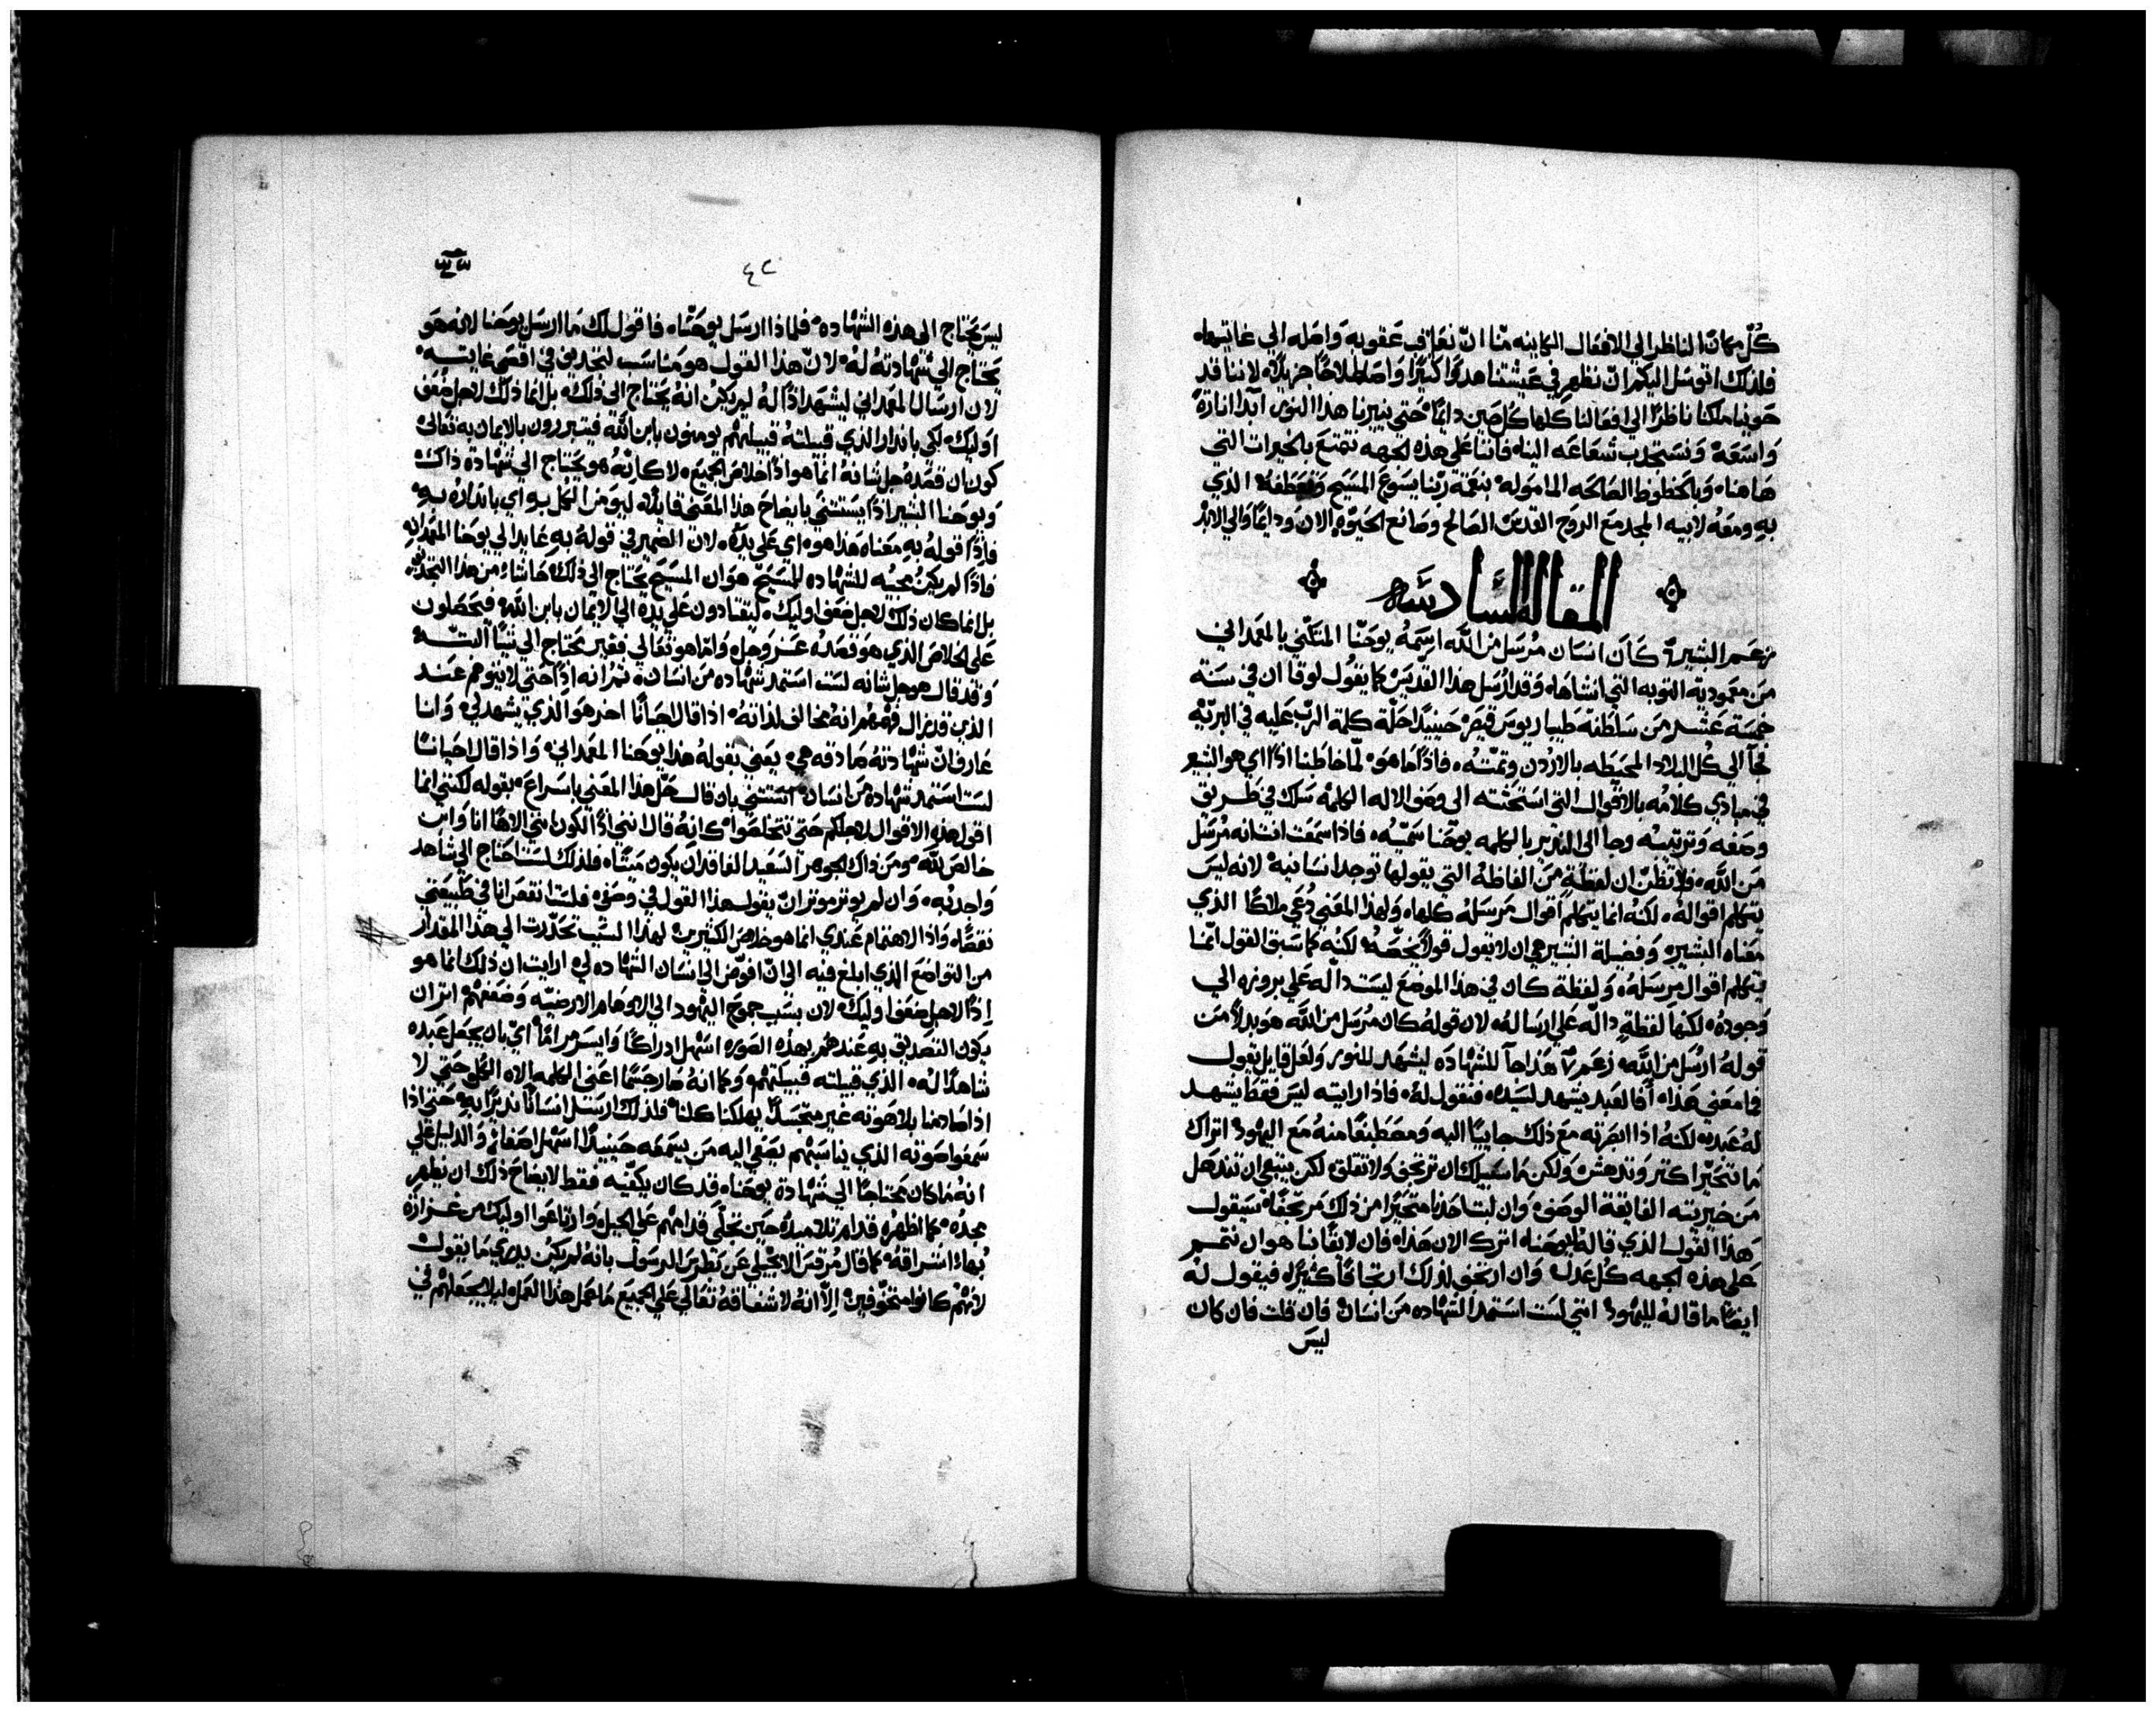 كُلّ مكان الناظر الي الافعال الكاينه منّا انّ نعارف عقوبه واصله الي غايتها
فلذلك اتوسّل اليكم ان نظهر في عيشتنا هدوًا كثيرًا واصطلاحًا جزيلًا لاننا قد
حوينا ملكنا ناظرًا الي فعالنا كلها كُل حين دايمًا حتي ينيرنا هذا النور آبدا انارةً
واسعة ونستجدب شعاعه الينا فاننا علي هذه الجهه نتمتع بالخيرات التي
هاهنا وبالحظوظ الصالحه المامولة بنعمة ربنا يسوع المسيح وتعطفهُ الذي
به ومعهُ لابيه المجد مع الروح القدس الصالح وصانع الحيوٰه الان ودايمًا والي الابد
المقاله السادسه
زعم البشير كان انسان مُرسَل من الله اسمهُ يوحنّا المتكنّي بالمعمداني
من معمودية التوبه التي انشاها وقد ارُسَل هذا القديس كما يقول لوقا ان في سنة
خمسة عشر من سلطنة طيباريوس قيصر حينيدًا حلّة كلمة الربّ عليه في البريّه
فجآ الي كُل البلاد المحيطه بالاردن وتمّته فاذًا ما هو لمّا خاطبنا اذًا اي هو البشير
في مبادي كلامُه بالاقوال التي استحثته الي وصف الاله الكلمه سلك في طريق
وصفه وترتيبُه وجا الي النذير بالكلمه يوحنا سميّه فاذا سمعت انت انه مُرسَل
من الله فلا تظن ان لفظة من الفاظهُ التي يقولها توجد انسانيه لانه ليس
يتكلم اقوالهُ لكنهُ انما يتكلم اقوال مرسَلهُ كلها ولهذا المعني دُعي ملاكًا الذي
معناه البشير وفضيلة البشير هي ان لا يقول قولًا يخصّهُ لكنهُ كما سبق القول انّما
يتكلم اقوال مرسَلهُ ولفظة كان في هذا الموضع ليست داله علي بروزه الي
وجودهُ لكنها لفظةٍ دالّه علي ارساله لان قولهُ كان مُرسَل من الله هو بدلاً من
قولهُ ارسَل من الله زعم هذا جآ للشهاده ليشهد للنور ولعل قايل يقول
فما معني هذا أفالعبد يشهد لسيده فنقول لهُ فاذا رايته ليس فقط يشهد
لهُ عبده لكنهُ اذا ابصرته مع ذلك جاييًا اليه ومصطبغًا منهُ مع اليهود اتراك
ما تتحيّر اكتر وتندهش ولكن ما سبيلك ان ترتجف ولا تقلق لكن ينبغي ان تندهل
من خيريته الفايقة الوصف وان لبت احدنا متحيّرًا من ذلك مرتجفًا سيقول
هذا القول الذي قالهُ ليوحنا اترك الان هذا فان لايقًا بنا هو ان نتمم
علي هذه الجهه كُل عدل وان ارتجف لذلك ارتجافًا كثيرًا فيقول لهُ
ايضًا ما قاله لليهود انني لست استمد الشهاده من انسان فان قلت فان كان
ليس
٤٢
ليس يحتاج الي هذه الشهاده فلماذا ارسَل يوحنّا فاقول لك ما ارسَل يوحنا لانه هو
يحتاج الي شهادتهُ لهُ لان هذا القول هو مناسب لتجديف في اقصي غايته
لان ارسال المعمداني ليشهد اذًا لهُ لم يكن انهُ يحتاج الي ذلك بل انما ذلك لاجل ضعف
اوليك لكي بانذار الذي قبيلتهُ قبيلتهم يومنون بابن الله فيتبررون بالايمان به تعالي
كون ان قصدهُ جل شانهُ انما هو اذًا خلاص الجميع لا كانّهُ هو يحتاج الي شهادة ذاك
ويوحنا البشير اذًا يستثني بايضاح هذا المعني قايلًا ليومن الكُل به اي بانذارهُ به
فاذًا قولهُ به معناه هذا هو اي علي يدهُ لان الضمير في قولهُ به عايد الي يوحنا المعمدانٍ
فاذًا لم يكن مجيهُ للشهاده للمسيح هو ان المسيح يحتاج الي ذلك حاشاءُ من هذا التجديف
بل انما كان ذلك لاجل ضعف اوليك ليقتادون علي يده الي الايمان بابن الله فيحصلون
علي الخلاص الذي هو قصدهُ عز وجل وامّا هو تعالي فغير محتاج الي شيًا البتّه
وقد قال هو جل شانه لست استمد شهاده من انسان ثم انه اذًا حتي لا يتوهم عند
الذين قد يزال فهمهم انهُ مخالف لذاتهُ اذا قال احيانًا اخر هو الذي يشهد لي وانا
عارف انّ شهادتهُ صادقه هي يعني بقولهُ هذا يوحنا المعمداني واذا قال احيانًا
لست استمد شهاده من انسان استثني بان قال حل هذا المعني باسراع بقوله لكنني انما
اقول هذه الاقوال لاجلكم حتي تتخلصوا كانهُ قال انني اذًا لكون انني الاهًا انا وابن
خالص لله ومن ذاك الجوهر السعيد الفاقد ان يكون ميتًا فلذلك لست احتاج الي شاهد
واحد بُه وان لم يوتر موتر ان يقول هذا القول في وصفي فلست انقص انا في طبيعتي
نقصًا واذا الاهتمام عندي انما هو خلاص الكثيرين لهذا السبب تحدّرت الي هذا المقدار
من التواضع الذي ابلغ فيه الي ان افوّض الي انسان الشهاده لي ارايت ان ذلك انما هو
إذًا لاجل ضعف اوليك لان بسبب جموح اليهود الي الاوهام الارضيّه وضعفهم اتران
يكون التصديق به عندهم بهذه الصوره اسهل ادراكًا وايسر مرامًا اي بان يجعل عبده
شاهدًا لهُ الذي قبيلته قبيلتهم وكما انهُ صار جسمًا اعني الكلمه الاه الكُل حتي لا
اذا صادمنا بلاهوته غير متجسدًا يهلكنا كلنا فلذلك ارسَل انسانًا نذيرًا به حتي اذا
سمعوا صوته الذي يناسبهم يصغي اليه من يسمعه حينيدًا اسهل اصغاءٍ والدليل علي
انهُ ما كان محتاجًا الي شهادة يوحنا قد كان يكفيّه فقط لايضاح ذلك ان يظهر
مجدُه كما اظهرهُ قدام تلاميذهُ حين تجلّي قدامهم علي الجبل وارتاعوا اوليك من غزارة
بُهاء اشراقهُ كما قال مُرقس الانجيلي عن بطرس الرسول بانهُ لم يكن يدري ما يقول
لانهم كانوا متخوّفين إلاّ انهُ لاشفاقهُ تعالي علي الجميع ما عمل هذا العمل ليلا يجعلهم في